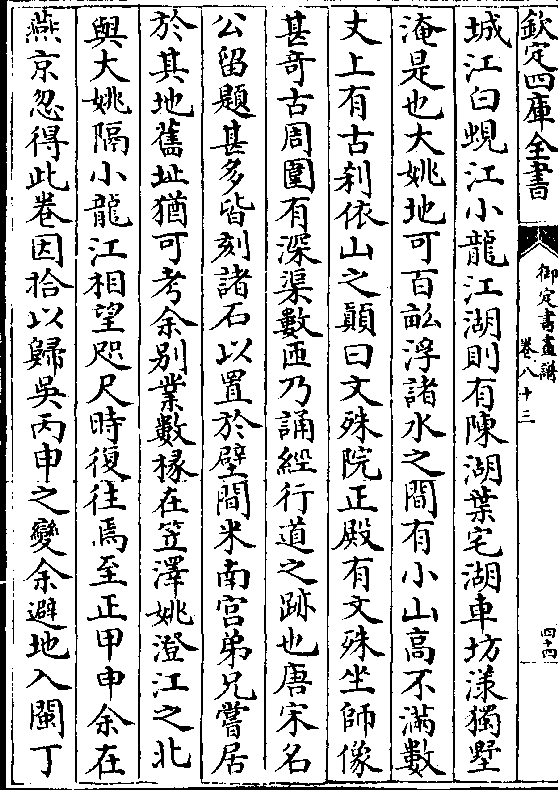 欽定四庫全書
御定書畫譜
卷八十三
四十四
城江白蜆江小龍江湖則有陳湖葉宅湖車坊漾獨墅
淹是也大姚地可百畝浮諸水之間有小山高不滿數
丈上有古刹依山之顚曰文殊院正殿有文殊坐師像
甚奇古周圍有深渠數匝乃誦經行道之跡也唐宋名
公留題甚多皆刻諸石以置於壁間米南宫弟兄嘗居
於其地舊址猶可考余别業數椽在笠澤姚澄江之北
與大姚隔小龍江相望咫尺時復往焉至正甲申余在
燕京忽得此卷因拾以歸吳丙申之變余避地入閩丁